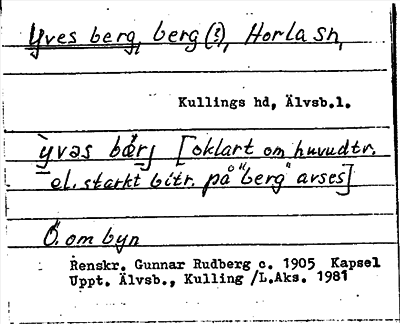 Yves berg, berg (?), Horla sn,
Kullings hd, Älvsb.l.
yvəs bærj [oklart om huvudtr.
el. starkt bitr. på "berg" avses]
Ö. om byn
Renskr. Gunnar Rudberg c. 1905 Kapsel
Uppt. Älvsb., Kulling /L.Aks. 1981